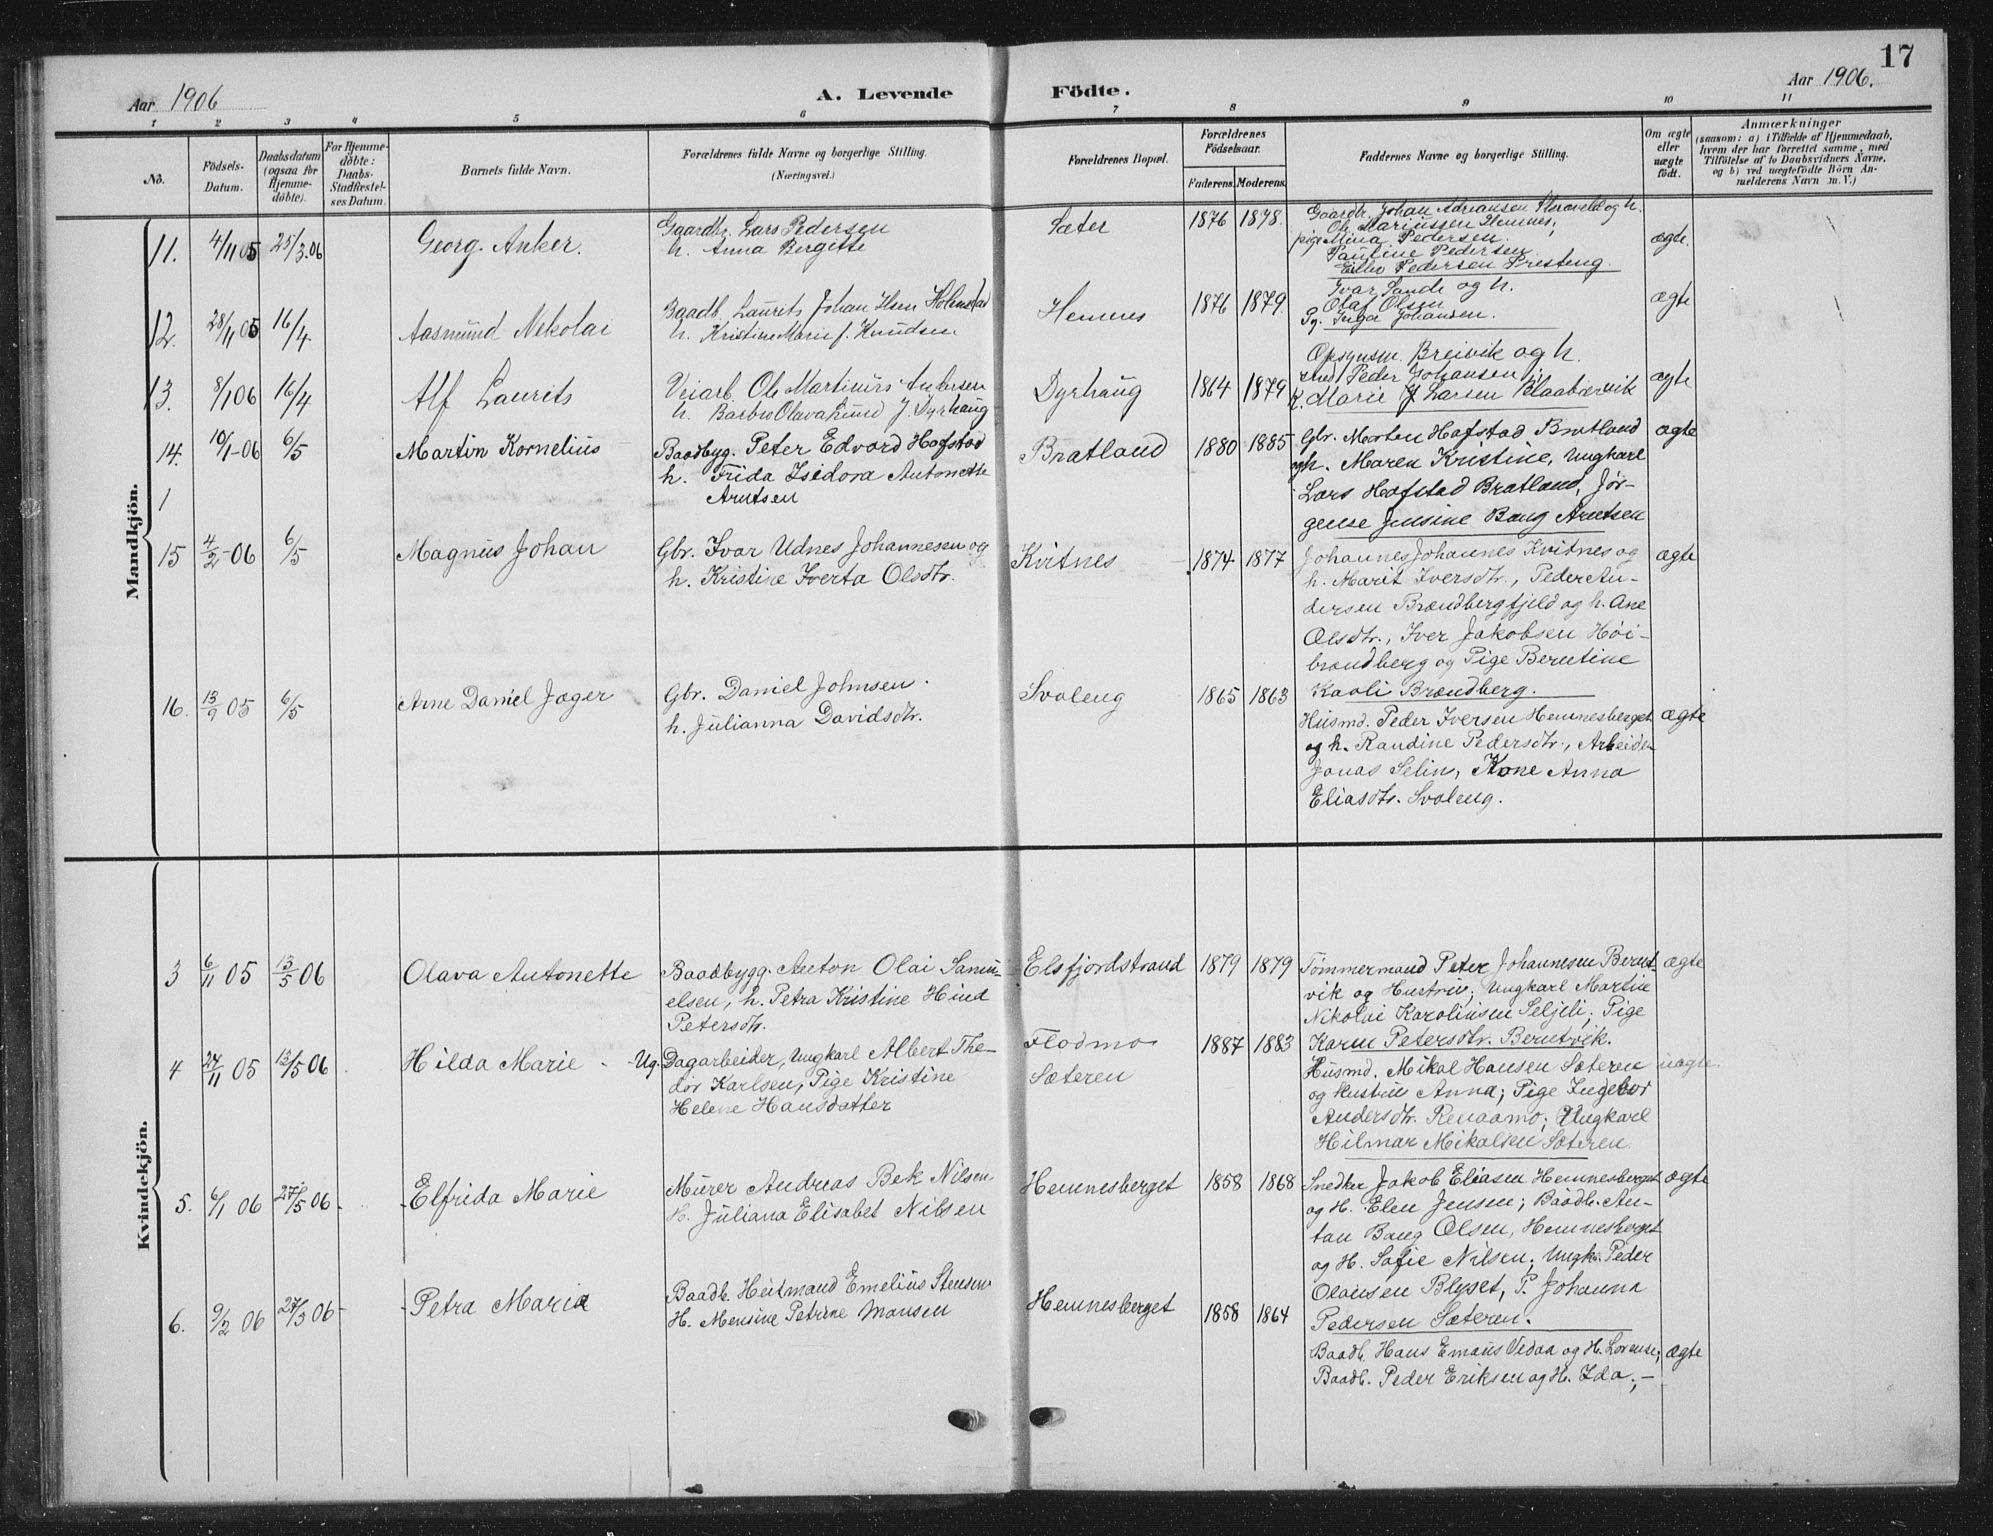 17
Aar 1906
A. Levende Födte.
Aar 1906.
1 2 3 4 5 6 7 8 9 10 11
No.
Födsels-
Datum.
Daabsdatum
(ogsaa for
Hjemme-
døbte).
For Hjemme-
døbte:
Daabs-
Stadfæstel-
ses Datum.
Barnets fulde Navn.
Forældrenes fulde Navne og borgerlige Stilling.
(Næringsvei.)
Forældrenes Bopæl.
Forældrenes
Födselsaar.
Faderens. Moderens.
Faddernes Navne og borgerlige Stilling.
Om ægte
eller
uægte
født.
Anmærkninger
(saasom: a) i Tilfælde af Hjemmedaab,
hvem der har forrettet samme, med
Tilföielse af to Daabsvidners Navne.
og b) ved uægtefödte Börn An-
melderens Navn m. V.)
Mandkjön.
11. 4/11 05 25/3.06 Georg Anker.
Gaardbr. Lars Pedersen
h. Anna Bergitte
Sæter 1876 1878.
Gaardbr. Johan Adriansen og h.
Ol. Mariussen Hemnes,
pige Mina Pedersen.
Pauline Pedersen
Pedersen Presteng.
ægte.
12. 28/11 05 16/4 Aasmund Nekolai
Baadb. Laurits Johan Olsen Holmstad
h. Kristine Marie f. Knudsen
Hemnes 1876 1879.
Ivar Sande og h.
Olaf Olsen
Pg. Inga Johansen.
ægte
13. 8/1 06 16/4 Alf Laurits
Veiarb. Ole Martinus Andersen
h. Barbro Olava Lund f. Dyrhaug
Dyrhaug 1864 1879
Opsynsm. Breivik og h.
smed Peder Johansen
k. Marie J Larsen Blaabærvik
ægte
14. 10/1-06 6/5 Martin Kornelius
Baadbyg. Peter Edvard Hafstad
h. Frida Isidora Antonette
Arntsen
Bratland 1880 1885
Gbr. Morten Hafstad Bratland
og h. Maren Kristine, Ungkarl
Lars Hafstad Bratland, Jør-
gense Jensine Bang Arntsen
ægte
1
15 4/2-06 6/5 Magnus Johan
Gbr. Ivar Udnes Johannesen og
h. Kristine Iverta Olsdtr.
Kvitnes 1874 1877
Johannes Johannes Kvitnes og
h. Marit Iversdtr., Peder An-
dersen Brændbergfjeld og h. Ane
Olsdtr., Iver Jakobsen Høi-
brændberg og Pige Berntine
Kaoli Brændberg.
ægte
16. 13/9 05 6/5 Arne Daniel Jæger
Gbr. Daniel Johnsen.
h. Julianna Davidsdtr.
Svaleng 1865 1863
Husmd. Peder Iversen Hemnesberget
og h. Randine Pedersdtr., Arbeider
Jonas Selin, Kone Anna
Eliasdtr. Svaleng.
ægte
Kvindekjön.
3 6/11 05 13/5 06 Olava Antonette
Baadbygg. Anton Olai Samu-
elsen, h. Petra Kristine Hind
Petersdtr.
Elsfjordstrand 1879 1879
Tömmermand Peter Johannesen Bernt-
vik og Hustru; Ungkarl Martin
Nikolai Karolinsen Seljeli; Pige
Karen Petersdtr. Berntvik.
ægte
4 24/11 05 13/5 06 Hilda Marie - Ug.
Dagarbeider, Ungkarl Albert The-
dor Karlsen, Pige Kristine
Helene Hansdatter
Flodmo
Sæteren
1887 1883
Husmd. Mikal Hansen Sæteren
og Hustru Anna; Pige Ingebor
Andersdtr. Renaamo; Ungkarl
Hilmar Mikalsen Sæteren.
uægte.
5. 6/1 06 27/5 06 - Elfrida Marie
Murer Andreas Bek Nilsen
H. Juliana Elisabet Nilsen
Hemnesberget 1858 1868
Snedker Jakob Eliasen Hemnesberget
og H. Elen Jensen; Baadb. An-
tan Bang Olsen, Hemnesberget
og H. Sofie Nilsen; Ungk. Peder
Olausen Blyset, P. Johanna
Pedersen Sæteren.
ægte
6. 9/2 06 27/3 06 - Petra Maria
Baadb. Heitmand Emelius Stensen
H. Mensine Petrine Monsen
Hemnesberget 1858 1864
Baadb. Hans Emaus Vedaa og H. Lorense;
Baadb. Peder Eriksen og H. Ida; -
ægte